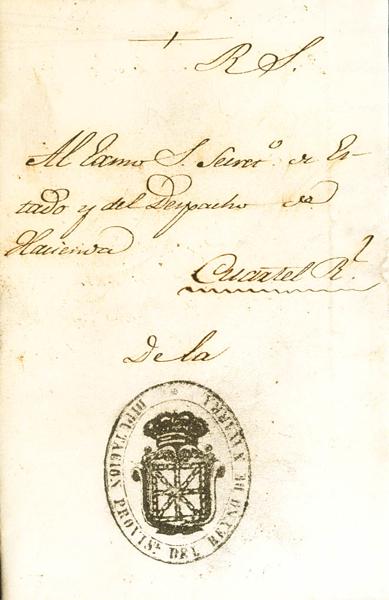 R S.
Al Excmo S. Secretº. de Es-
tado y del Despacho de
Hacienda
Cuartel Rl.
De la
DIPUTACION PROVISL. DEL REYNO DE NAVARRA